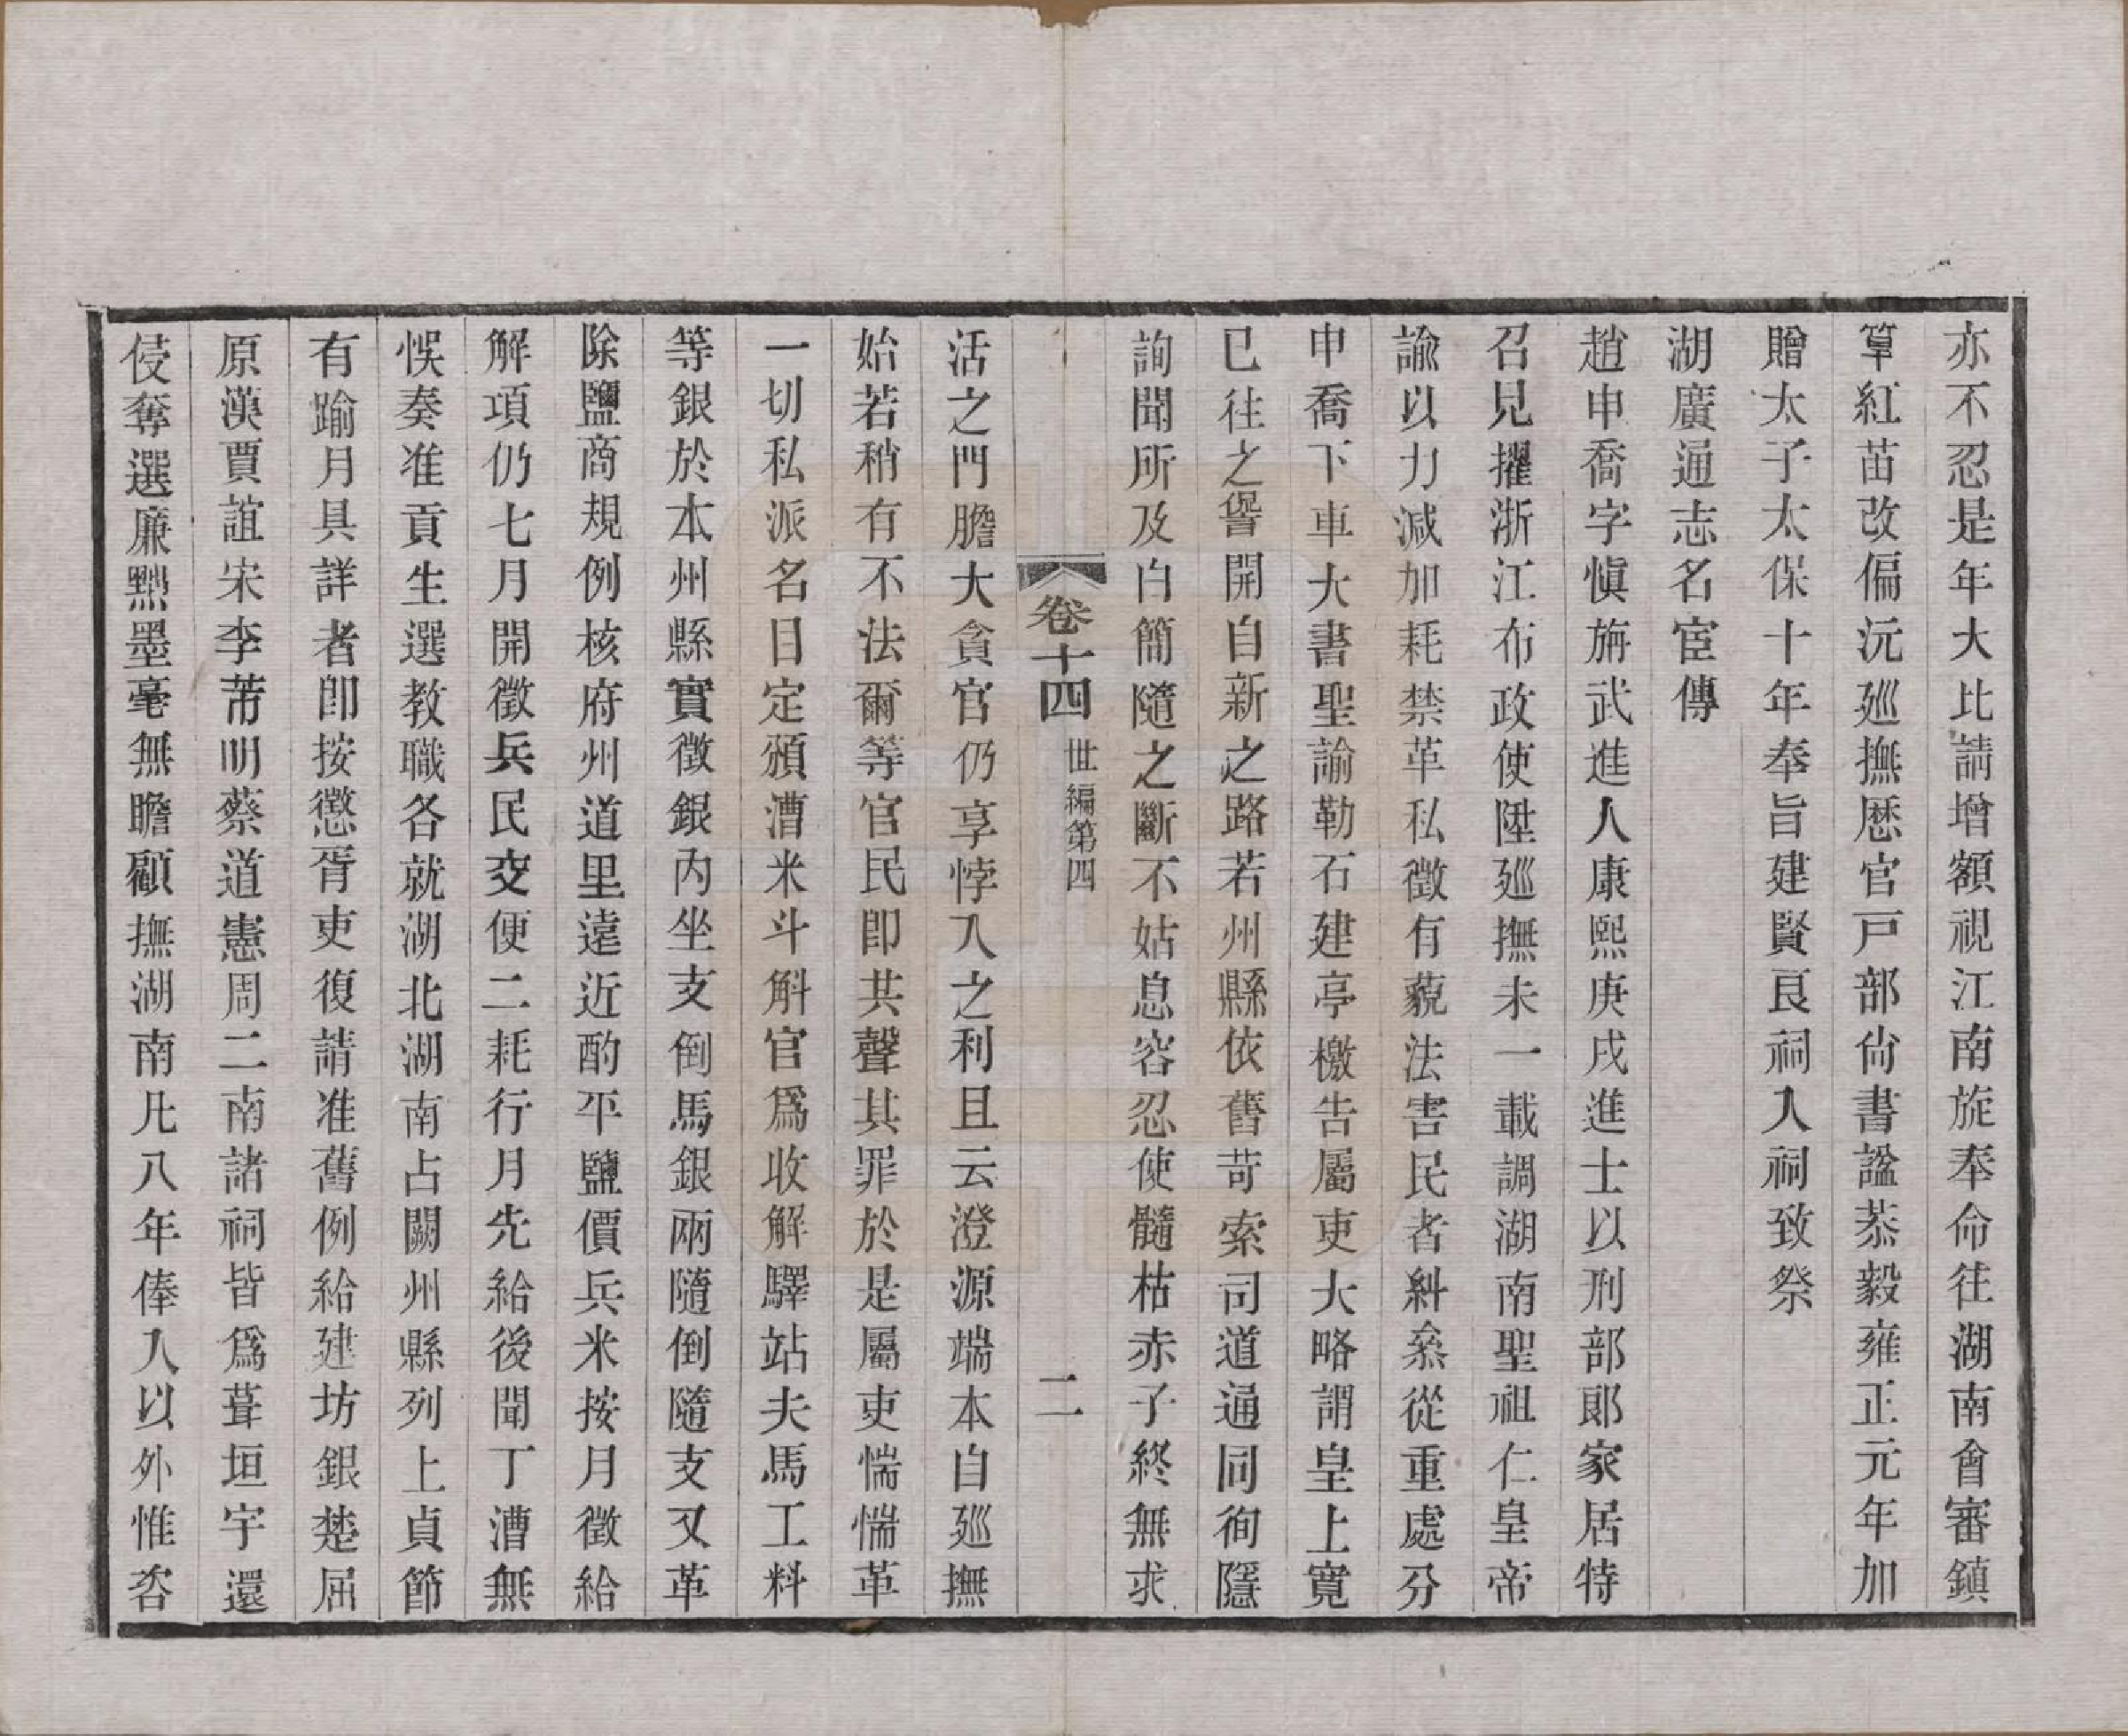 亦不忍是年大比請增額視江南旋奉命往湖南會審鎮
筸紅苗改偏沅廵撫厯官戸部尙書諡恭毅雍正元年加
贈太子太保十年奉旨建賢良祠入祠致祭
湖廣通志名宦傳
趙申喬字愼旃武進人康熙庚戌進士以刑部郞家居特
召見擢浙江布政使陞廵撫未一載調湖南聖祖仁皇帝
諭以力減加耗禁革私徵有藐法害民者糾叅從重處分
申喬下車大書聖諭勒石建亭檄告屬吏大略謂皇上寛
已往之諐開自新之路若州縣依舊苛索司道通同徇隱
詢聞所及白簡隨之斷不姑息容忍使髓枯赤子終無求
卷十四 世編第四 二
活之門膽大貪官仍享悖入之利且云澄源端本自廵撫
始若稍有不法爾等官民卽共聲其罪於是屬吏惴惴革
一切私派名目定頒漕米斗斛官爲收解驛站夫馬工料
等銀於本州縣實徵銀內坐支倒馬銀兩隨倒隨支又革
除鹽商規例核府州道里遠近酌平鹽價兵米按月徵給
解項仍七月開徵兵民交便二耗行月先給後聞丁漕無
悞奏准貢生選教職各就湖北湖南占闕州縣列上貞節
有踰月具詳者卽按懲胥吏復請准舊例給建坊銀楚屈
原漢賈誼宋李芾明蔡道憲周二南諸祠皆爲葺垣宇還
侵奪選廉黜墨毫無瞻顧撫湖南凡八年俸入以外惟咨